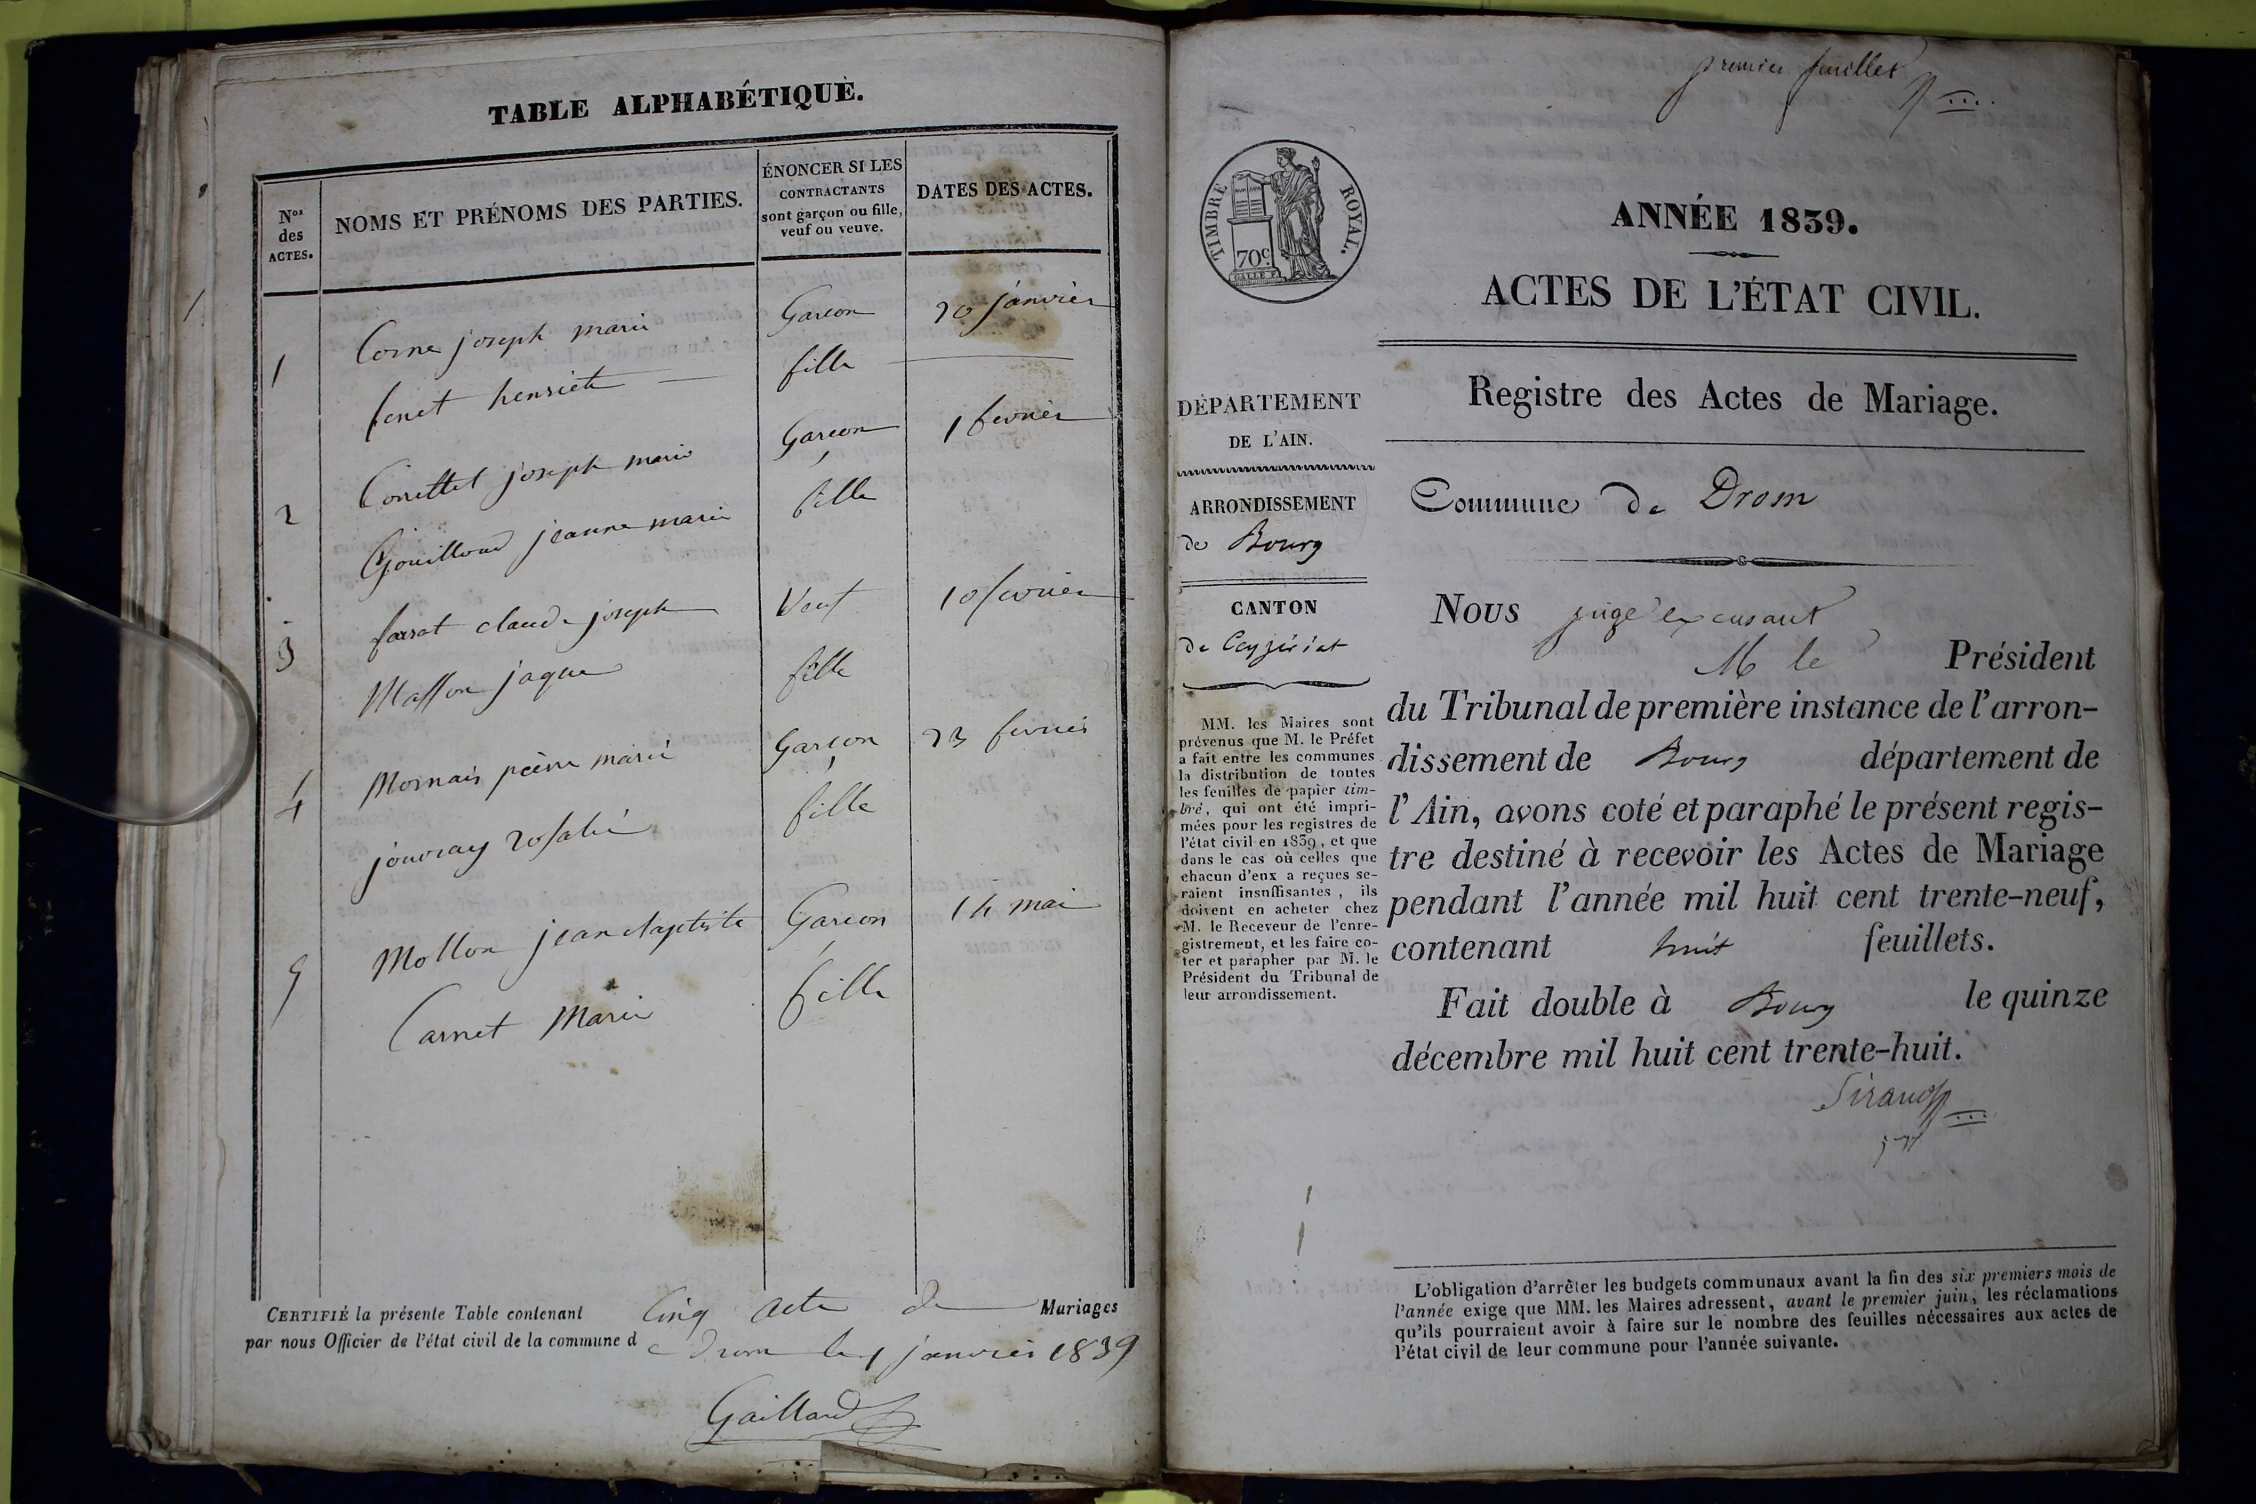 TABLE ALPHABÉTIQUE.
Nos des ACTES.
NOMS ET PRÉNOMS DES PARTIES.
ÉNONCER SI LES
CONTRACTANTS
sont garçon ou fille,
veuf ou veuve.
DATES DES ACTES.
1 Corne joseph marie Garcon 20 janvier
fenet henriete fille
2 Convettet joseph marie Garcon 1 fevrier
Gouilloud jeanne marie fille
3 farat claude joseph Veuf 10 fevrier
Masson jaque fille
4 Mornais pierre marie Garcon 23 fevrier
jouvray rosalie fille
5 Mollon jean baptiste Garcon 14 mai
Carnet Marie fille
CERTIFIÉ la présente Table contenant Cinq acte de Mariages
par nous Officier de l'état civil de la commune d e Drom le 1 janvier 1839
Gaillard
premier feuillet
TIMBRE ROYAL.
70c.
ANNÉE 1839.
ACTES DE L'ÉTAT CIVIL.
Registre des Actes de Mariage.
DÉPARTEMENT
DE L'AIN.
ARRONDISSEMENT
de Bourg
CANTON
de Ceyzériat
MM. les Maires sont
prévenus que M. le Préfet
a fait entre les communes
la distribution de toutes
les feuilles de papier tim-
bré, qui ont été impri-
mées pour les registres de
l'état civil en 1839, et que
dans le cas où celles que
chacun d'eux a reçues se-
raient insuffisantes, ils
doivent en acheter chez
M. le Receveur de l'enre-
gistrement, et les faire co-
ter et parapher par M. le
Président du Tribunal de
leur arrondissement.
Commune de Drom
Nous juge excusant
M le Président
du Tribunal de première instance de l'arron-
dissement de Bourg département de
l'Ain, avons coté et paraphé le présent regis-
tre destiné à recevoir les Actes de Mariage
pendant l'année mil huit cent trente-neuf,
contenant huit feuillets.
Fait double à Bourg le quinze
décembre mil huit cent trente-huit.
Sirand
L'obligation d'arrêter les budgets communaux avant la fin des six premiers mois de
l'année exige que MM. les Maires adressent, avant le premier juin, les réclamations
qu'ils pourraient avoir à faire sur le nombre des feuilles nécessaires aux actes de
l'état civil de leur commune pour l'année suivante.